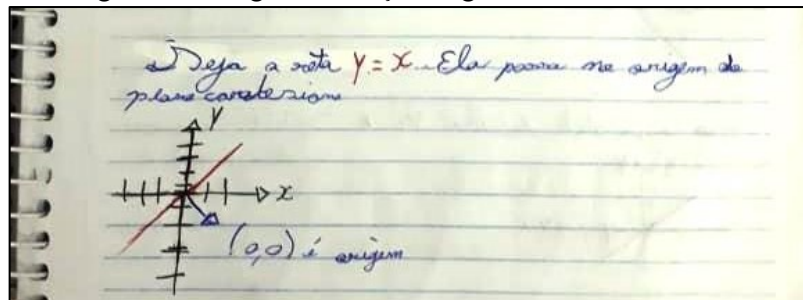 Seja a reta y = x. Ela passa na origem do
plano cartesiano
y
x
(0,0) é origem